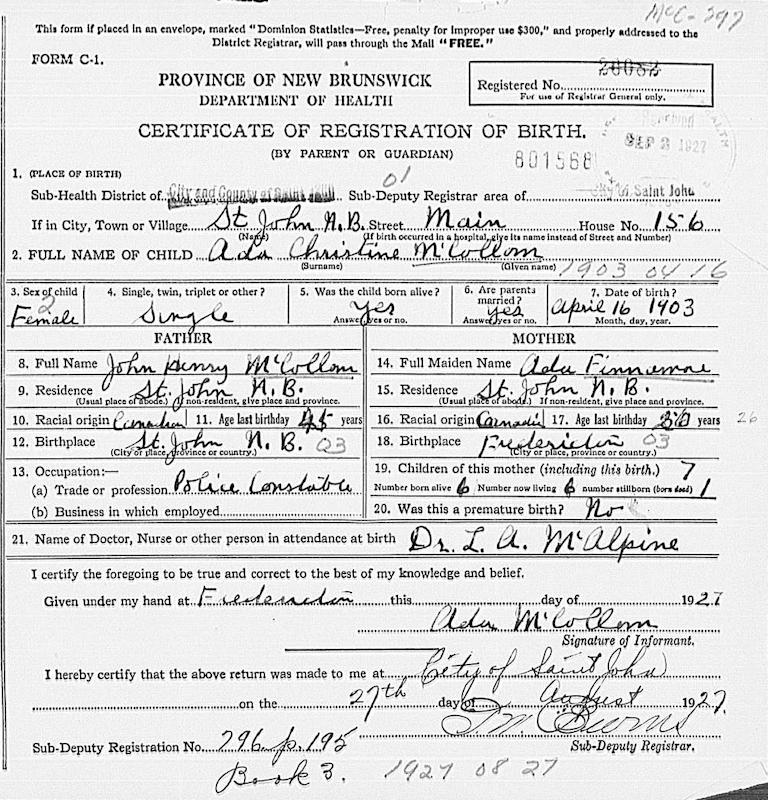 McC-297
This form if placed in an envelope, marked "Dominion Statistics—Free, penalty for improper use $300," and properly addressed to the
District Registrar, will pass through the Mail "FREE."
FORM C-1.
PROVINCE OF NEW BRUNSWICK
DEPARTMENT OF HEALTH
Registered No.
For use of Registrar General only.
CERTIFICATE OF REGISTRATION OF BIRTH.
(BY PARENT OR GUARDIAN)
SEP 2 1927
801568
1. (PLACE OF BIRTH)
01
Sub-Health District of City and County of Saint John Sub-Deputy Registrar area of City of Saint John
If in City, Town or Village St. John N.B. Street Main House No. 156
(Name) (If birth occurred in a hospital, give its name instead of Street and Number)
2. FULL NAME OF CHILD Ada Christine McCollom
(Surname) (Given name) 1903 04 16
3. Sex of child 4. Single, twin, triplet or other? 5. Was the child born alive? 6. Are parents married? 7. Date of birth?
2
Female Single Yes yes April 16 1903
Answer yes or no. Answer yes or no. Month, day, year.
FATHER MOTHER
8. Full Name John Henry McCollom 14. Full Maiden Name Ada Finnamore
9. Residence St. John N.B. 15. Residence St. John N.B.
(Usual place of abode.) If non-resident, give place and province. (Usual place of abode.) If non-resident, give place and province.
10. Racial origin Canadian 11. Age last birthday 45 years 16. Racial origin Canadian 17. Age last birthday years 26
12. Birthplace St. John N.B. 03 18. Birthplace Fredericton 03
(City or place, province or country.) (City or place, province or country.)
13. Occupation:— 19. Children of this mother (including this birth.) 7
(a) Trade or profession Police Constable Number born alive 6 Number now living 6 number stillborn (born dead) 1
(b) Business in which employed 20. Was this a premature birth? No
21. Name of Doctor, Nurse or other person in attendance at birth Dr. L. A. McAlpine
I certify the foregoing to be true and correct to the best of my knowledge and belief.
Given under my hand at Fredericton this day of 1927
Ada McCollom
Signature of Informant.
I hereby certify that the above return was made to me at City of Saint John
on the 27th day of August 1927.
Sub-Deputy Registration No. 296 p. 195 Sub-Deputy Registrar.
Book 3. 1927 08 27